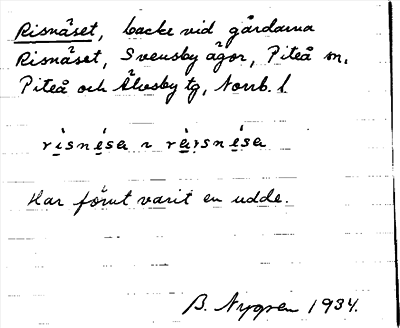 Risnäset, backe vid gårdarna
Risnäset, Svensby ägor, Piteå sn,
Piteå och Älvsby tg, Norrb. l.
Har förut varit en udde.
B. Nygren 1934.